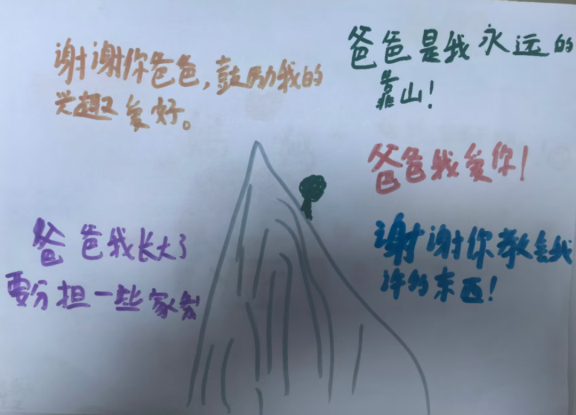 谢谢你爸爸,鼓励我的
兴趣爱好。
爸爸是我永远的
靠山!
爸爸我爱你!
爸爸我长大了
要分担一些家务
谢谢你教会我
许多东西!